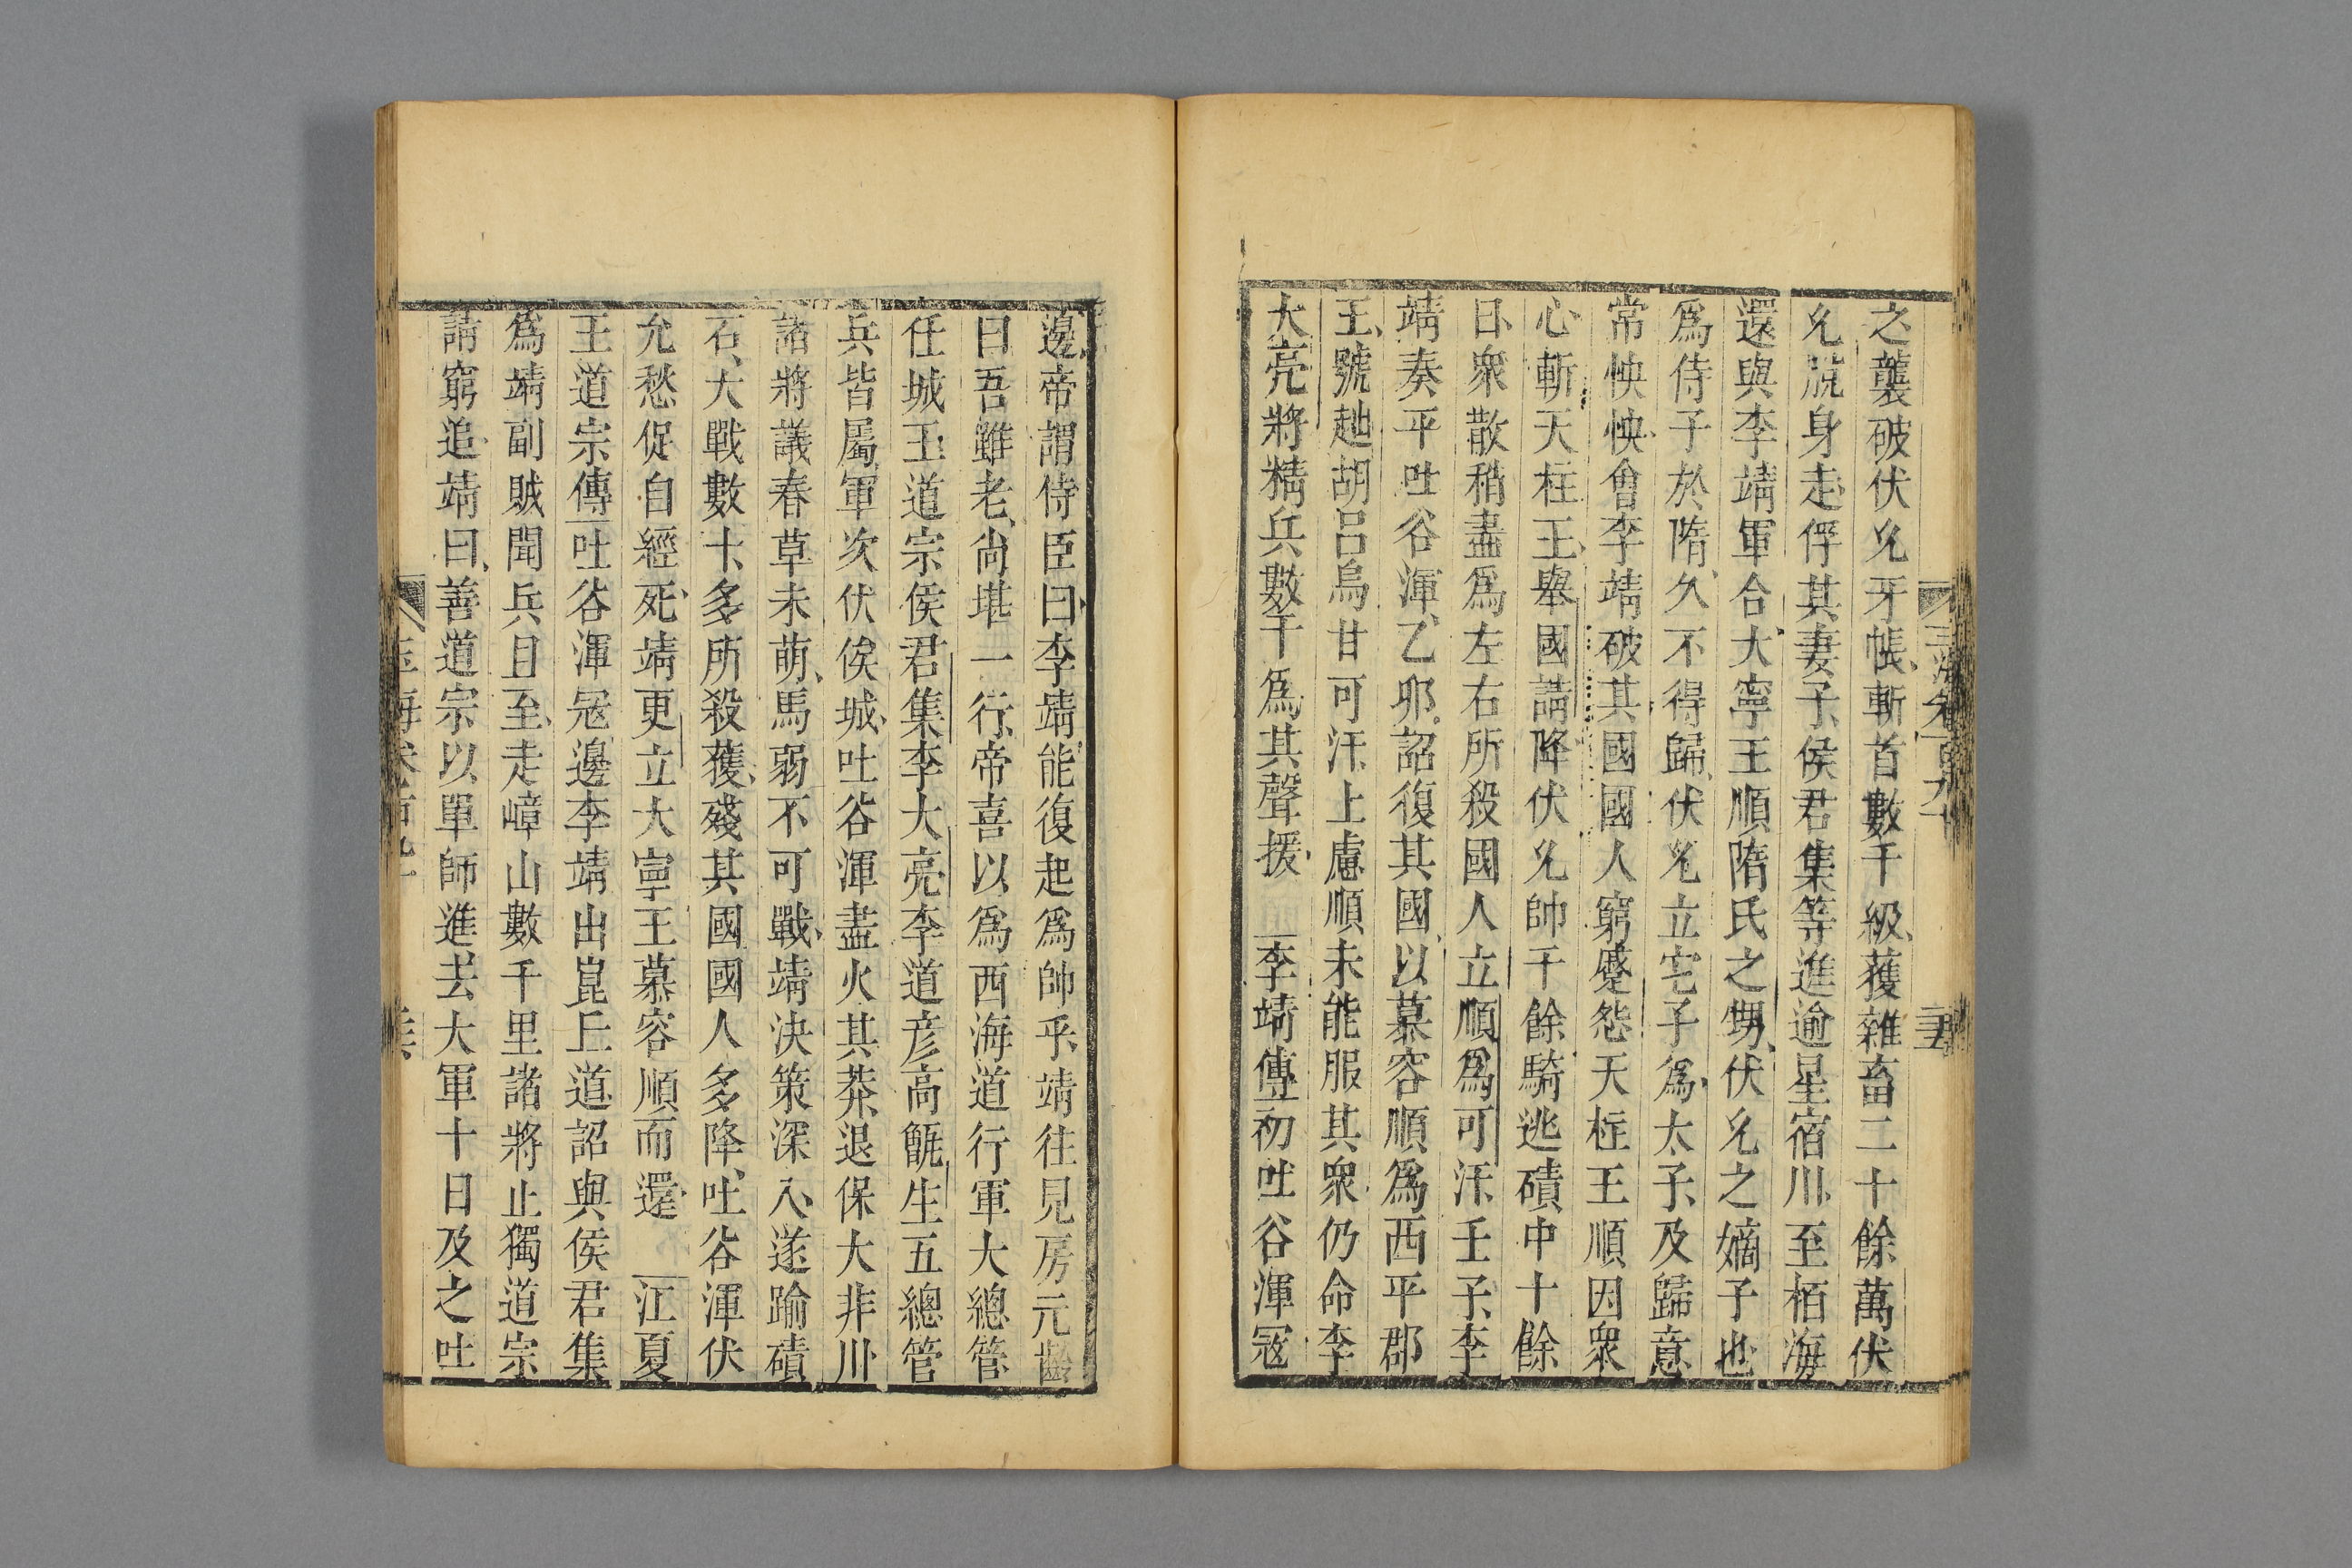 之襲破伏允牙帳斬首數千級獲雜畜二十餘萬伏
允脫身走俘其妻子侯君集等進逾星宿川至栢海
還與李靖軍合大寧王順隋氏之甥伏允之嫡子也
爲侍子於隋久不得歸伏允立它子爲太子及歸意
常怏怏會李靖破其國國人窮蹙怨天柱王順因衆
心斬天柱王舉國請降伏允帥千餘騎逃磧中十餘
日衆散稍盡爲左右所殺國人立順爲可汗壬子李
靖奏平吐谷渾乙卯詔復其國以慕容順爲西平郡
王號趉胡呂烏甘可汗上慮順未能服其衆仍命李
大亮將精兵數千爲其聲援 李靖傳初吐谷渾寇
邊帝謂侍臣曰李靖能復起爲帥乎靖往見房元齡
曰吾雖老尙堪一行帝喜以爲西海道行軍大總管
任城王道宗侯君集李大亮李道彥高甑生五總管
兵皆屬軍次伏俟城吐谷渾盡火其莽退保大非川
諸將議春草未萌馬弱不可戰靖決策深入遂踰磧
石大戰數十多所殺獲殘其國國人多降吐谷渾伏
允愁促自經死靖更立大寧王慕容順而還 江夏
王道宗傳吐谷渾寇邊李靖出崑丘道詔與侯君集
爲靖副賊聞兵且至走嶂山數千里諸將止獨道宗
請窮追靖曰善道宗以單師進去大軍十日及之吐